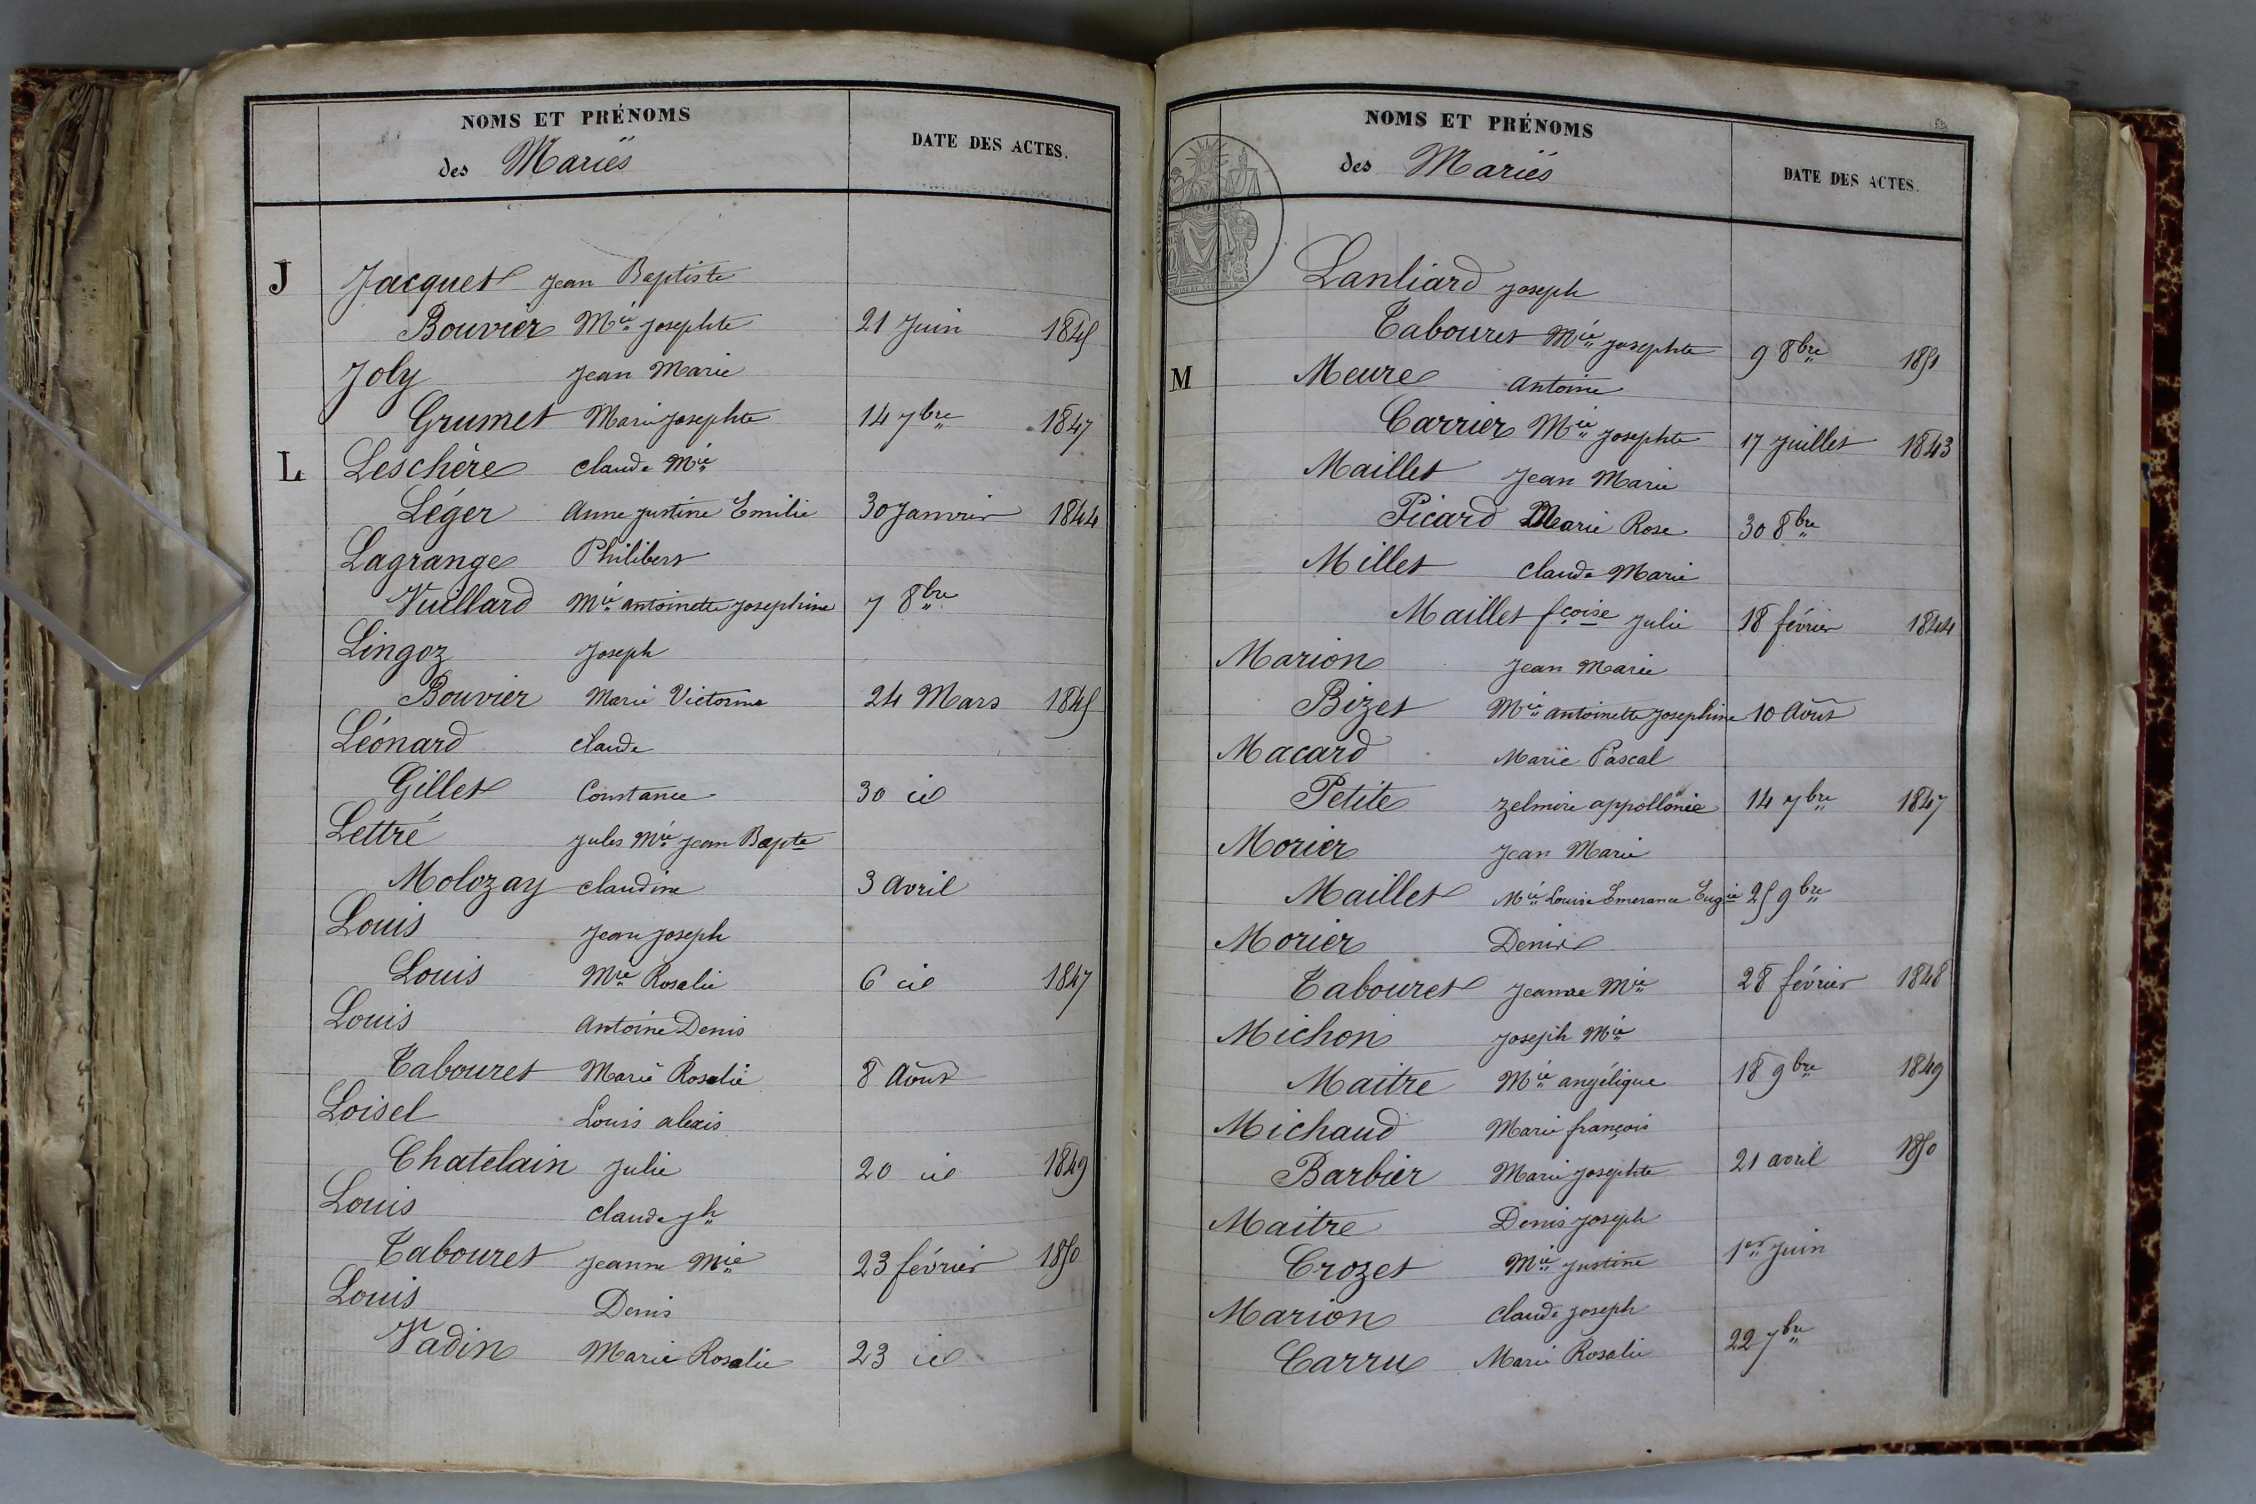 NOMS ET PRÉNOMS
des Mariés
DATE DES ACTES.
J Jacquet Jean Baptiste
Bouvier Mie Josephte 21 Juin 1845
Joly Jean Marie
Grumet Marie Josephte 14 7bre 1847
L Leschère Claude Mie
Léger Anne Justine Emilie 30 Janvier 1844
Lagrange Philibert
Vuillard Mie antoinette Josephine 7 8bre
Lingoz Joseph
Bouvier Marie Victorine 24 Mars 1845
Léonard Claude
Gillet Constance 30 id
Lettré Jules Mie Jean Bapte
Molozay Claudine 3 Avril
Louis Jean Joseph
Louis Mie Rosalie 6 id 1847
Louis Antoine Denis
Tabouret Marie Rosalie 8 Août
Loisel Louis alexis
Chatelain Julie 20 id 1849
Louis Claude Jh
Tabouret Jeanne Mie 23 février 1850
Louis Denis
Vadin Marie Rosalie 23 id
NOMS ET PRÉNOMS
des Mariés
DATE DES ACTES.
Lanliard Joseph
Tabouret Mie Josephte 9 8bre 1851
M Meure Antoine
Carrier Mie Josephte 17 Juillet 1843
Maillet Jean Marie
Picard Marie Rose 30 8bre
Millet Claude Marie
Maillet fçoise Julie 18 février 1844
Marion Jean Marie
Bizet Mie antoinette Josephine 10 Août
Macard Marie Pascal
Petite Zelmire appollonie 14 7bre 1847
Morier Jean Marie
Maillet Mie Louise Emerance Eugie 25 9bre
Morier Denis
Tabouret Jeanne Mie 28 février 1848
Michon Joseph Mie
Maitre Mie angélique 18 9bre 1849
Michaud Marie françois
Barbier Marie Josephte 21 avril 1850
Maitre Denis Joseph
Crozet Mie Justine 1er Juin
Marion Claude Joseph
Carru Marie Rosalie 22 7bre